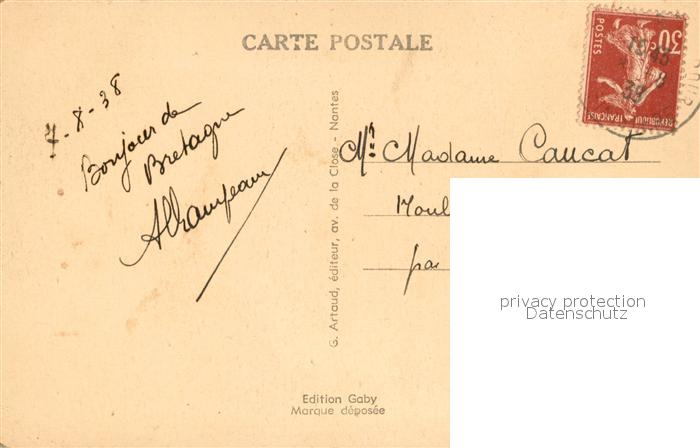 CARTE POSTALE
7-8-38
Bonjour de
Bretagne
G. Artaud, éditeur, av. de la Close - Nantes
POSTES
30c
REPUBLIQUE FRANÇAISE
38
Mr Madame Caucat
Moul
par
privacy protection
Datenschutz
Edition Gaby
Marque déposée